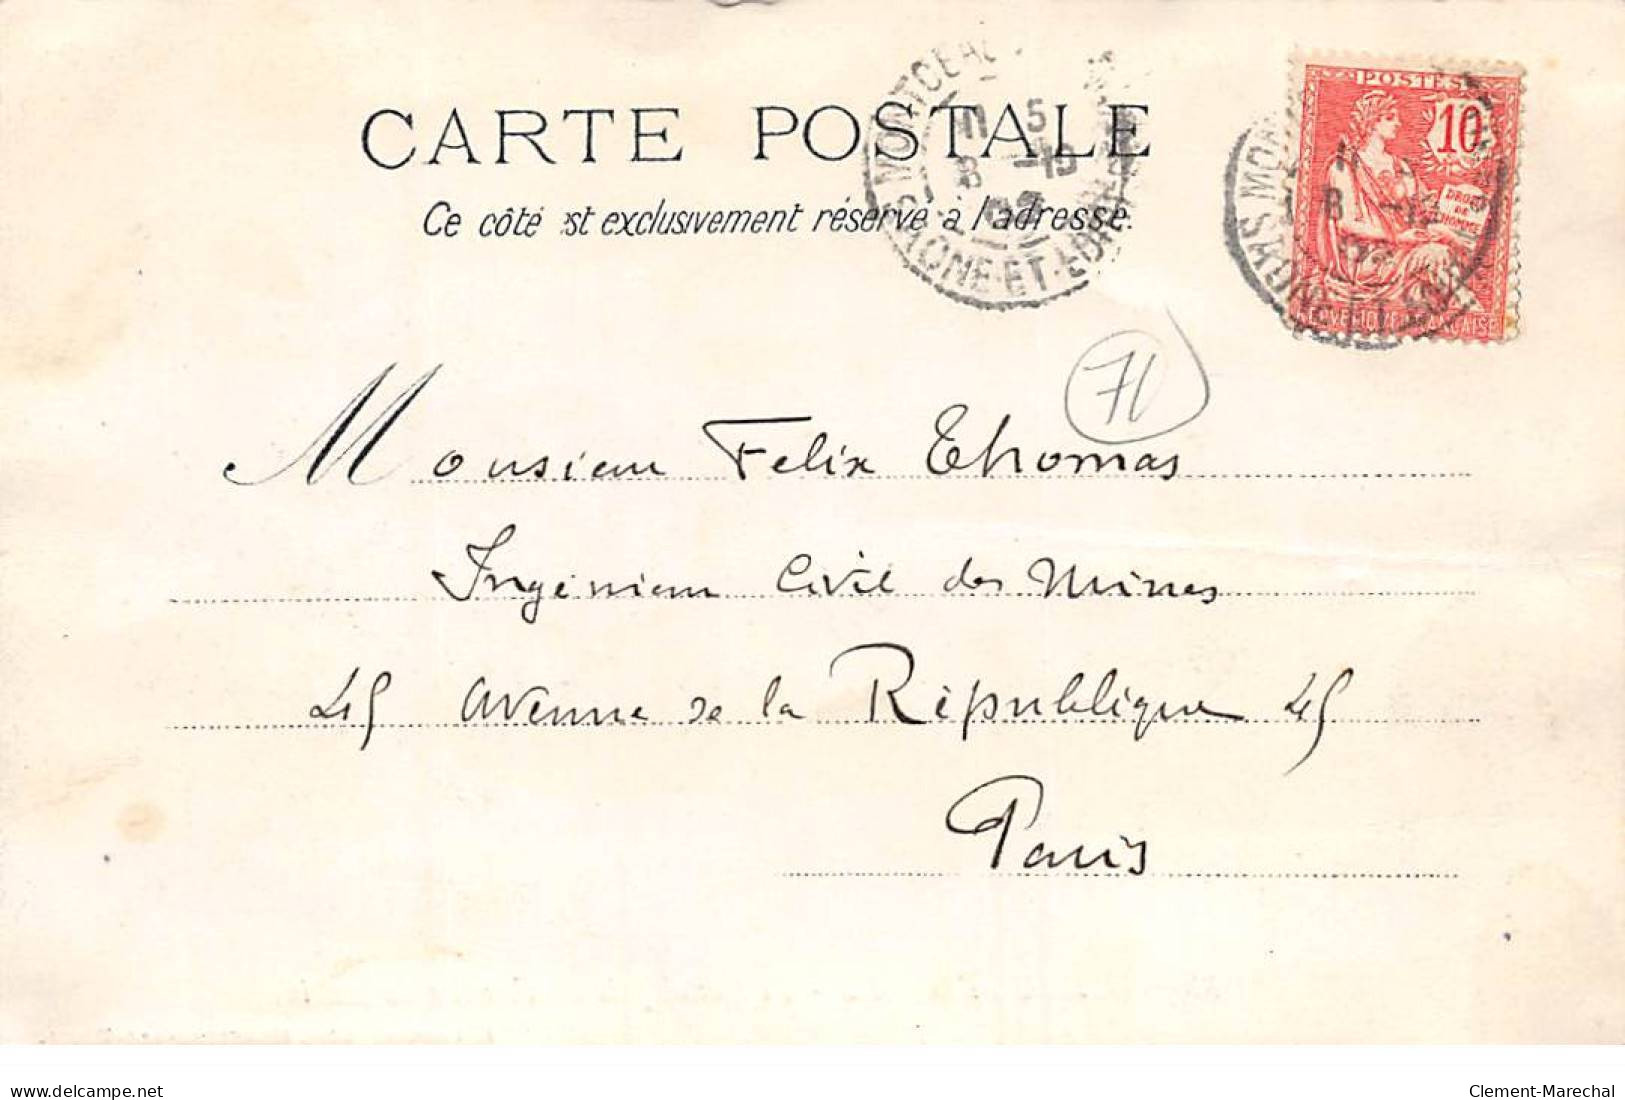 CARTE POSTALE
Ce côté est exclusivement réservé à l'adresse.
MONTCEAU
11 5
8 -10
SAONE-ET-LOIRE
POSTES
10
DROITS
DE
L'HOMME
REPUBLIQUE FRANCAISE
71
Monsieur Felix Thomas
Ingénieur Civil des Mines
45 avenue de la République 45
Paris
delcampe.net
Clement-Marechal